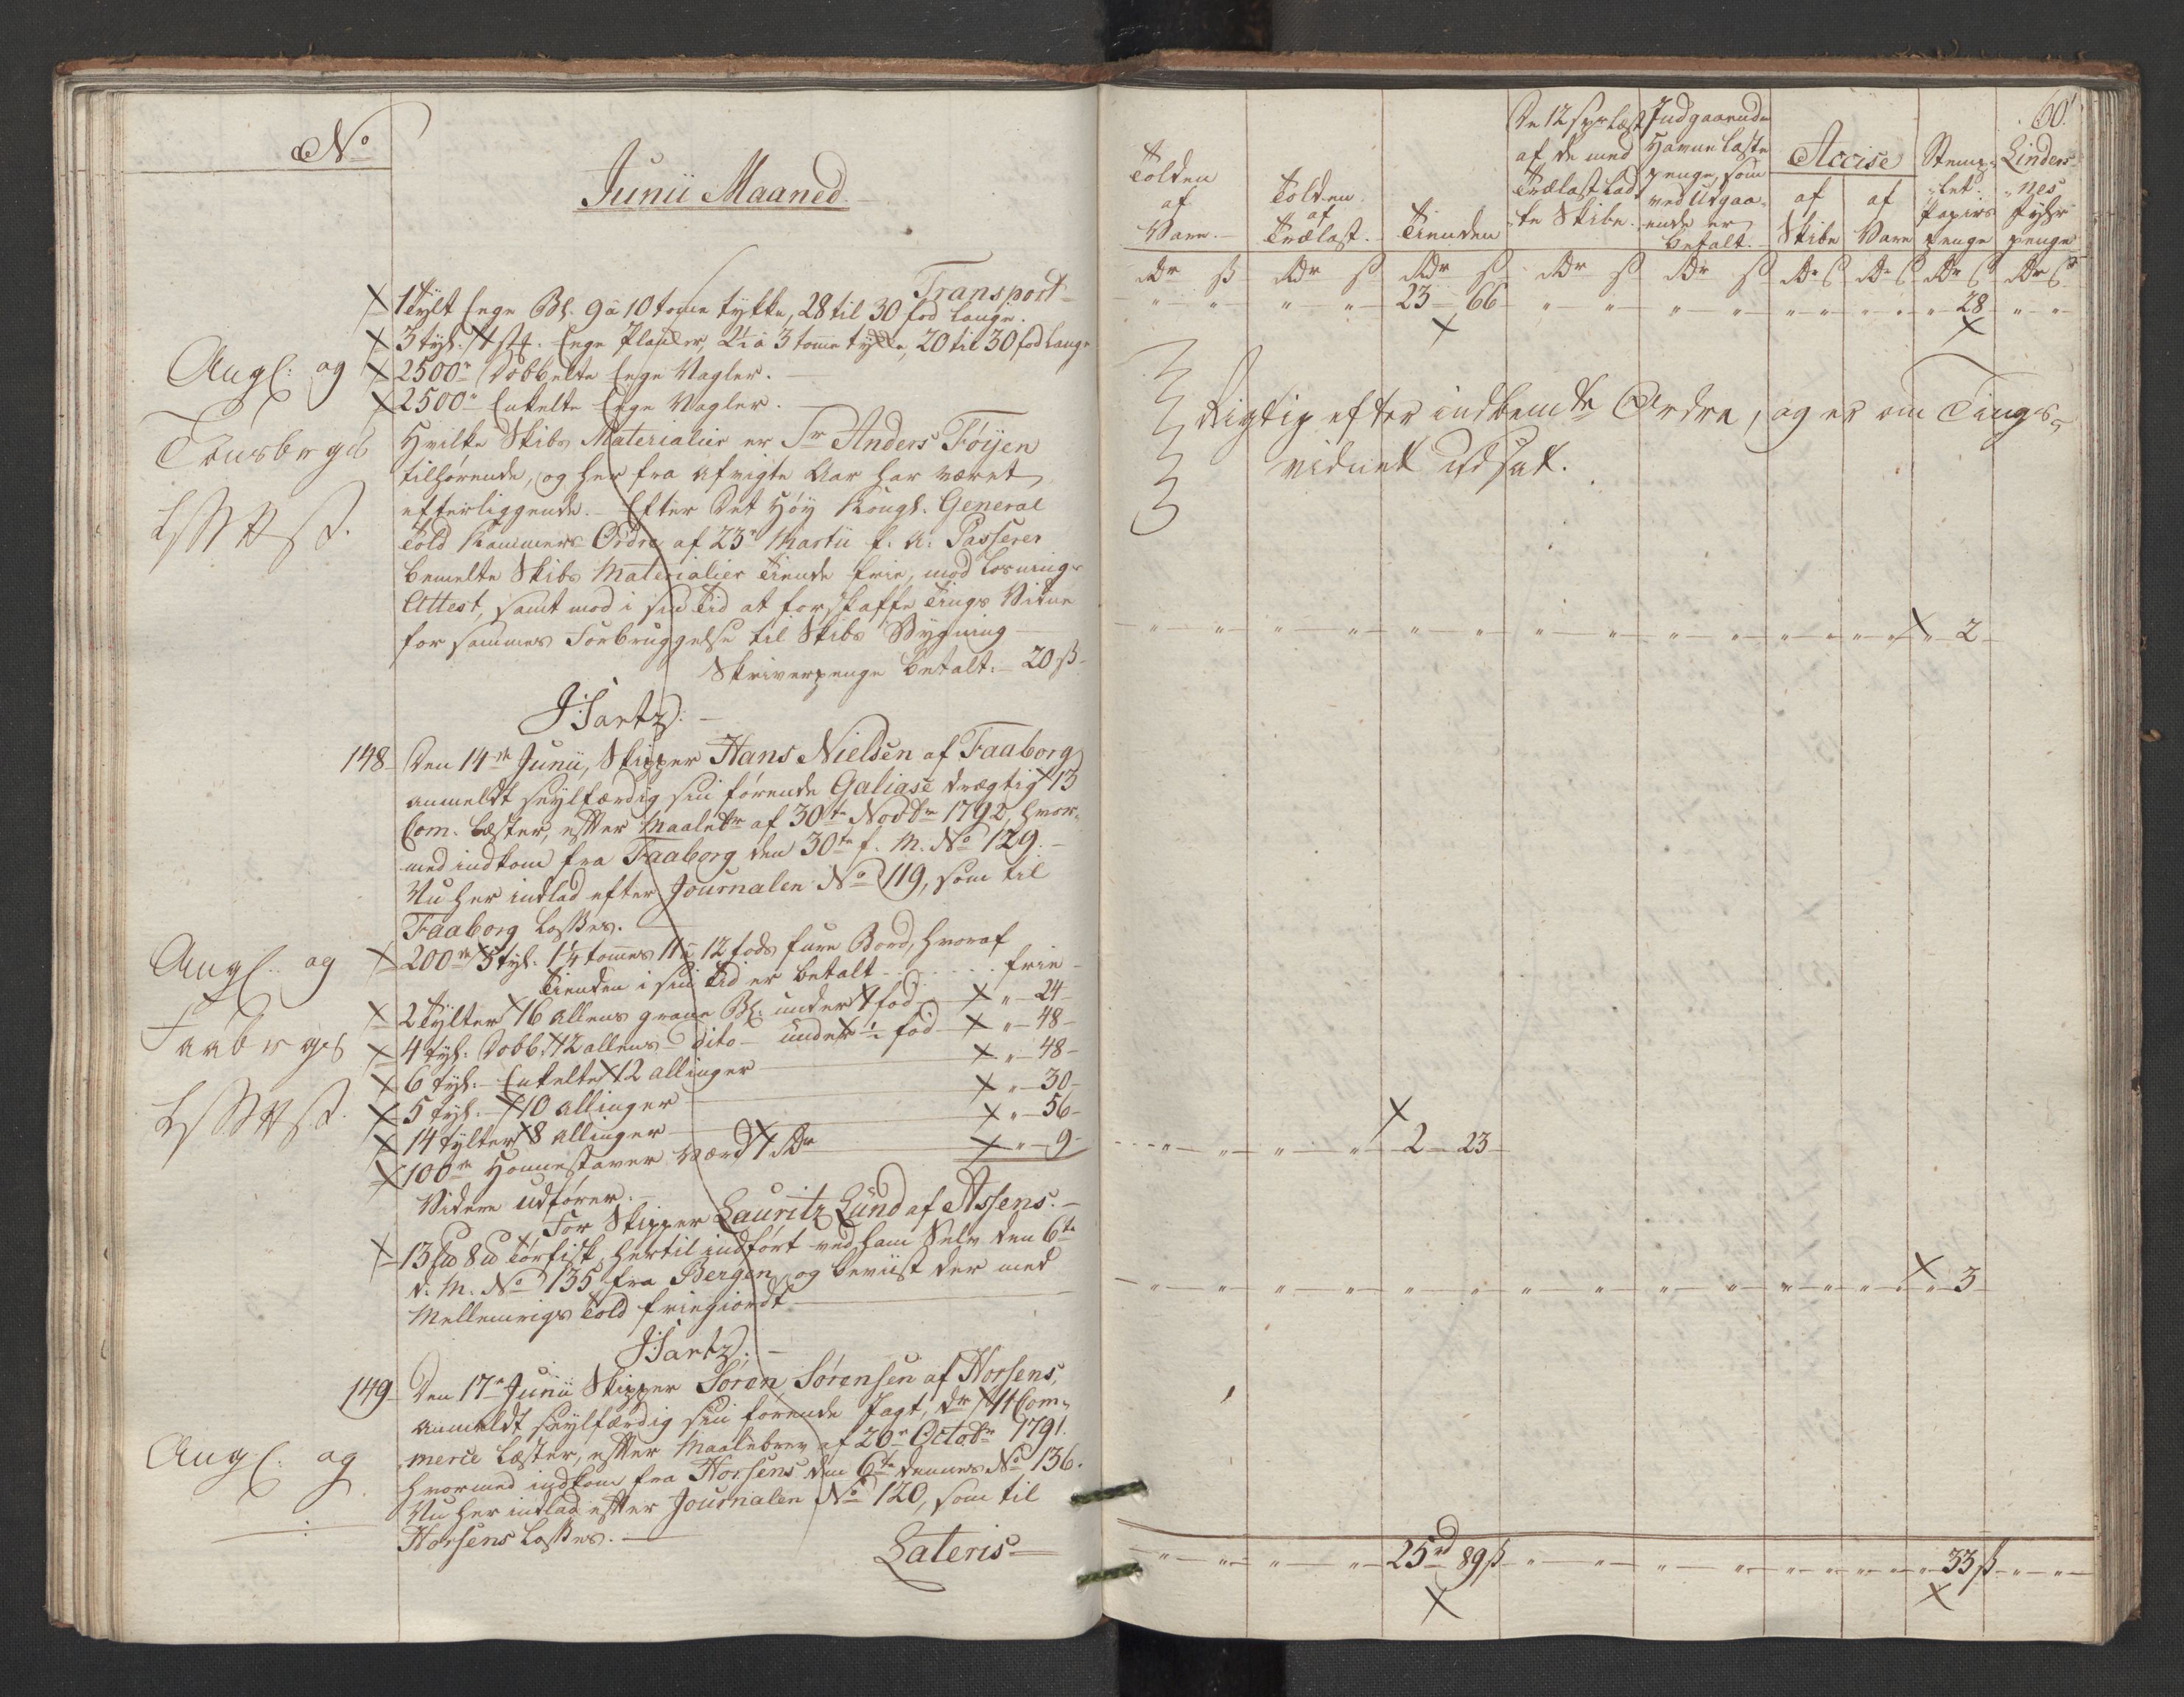 No
Junii Maaned.
Transport
1 Tylt Eege Bl. 9 à 10 tome tykke, 28 til 30 fod lange.
3 tyl. 4 st. Eege Planker, 2½ à 3 tomme tykke, 20 til 30 fod lange
Angl: og
2500de Dobbelte Eege Nagler.
2500de Enkelte Eege Nagler.
Tønsbergs
Hvilke Skibs Materialier er Sr Anders Føyen
tilhørende, og her fra afvigte Aar har været
efterliggende. Efter Det Høy Kongl. General
Told Kammers Ordre af 23de Martii f. A: Passerer
bemelte Skibs Materialier Tiende frie, mod Losnings
Attest, samt mod i sin Tid at forskaffe Tings Vidne
for sammes Forbruggelse til Skibs Bygning
Skriverpenge betalt: 20 ß
J Hartz.
148 Den 14de Junii, Skipper Hans Nielsen af Faaborg
anmeldt seylfærdig sin førende Galiase drægtig 13
Com. Læster, efter Maalebr af 30te Novbr 1792, hvor-
med indkom fra Faaborg den 30te f. M. No 129.
Nu her indlad efter Journalen No 119, som til
Faaborg losses.
Angl. og
200de 5 tyl. 1¼ tommes 11 à 12 fods fure Bord, hvoraf
Tienden i sin Tid er betalt frie
2 Tylter 16 allens grane Bl: under 4 fod " 24
Faaborgs
4 tyl: Dobb. 12 allens dito under ½ fod " 48
6 tyl. Enkelte 12 allinger " 48
5 tyl. 10 allinger " 30
14 tylter 8 allinger " 56
100de Honnestaver værd 1 Rdr " 9
Videre udfører.
For Skipper Lauritz Lund af Assens.
13 8 Tørfisk, hertil indført ved ham Selv den 6te
d. M. No 135 fra Bergen, og beviist der med
Mellemrigs Told friegiordt
J Hartz.
149 Den 17de Junii Skipper Søren Sørensen af Horsens,
anmeldt seylfærdig sin førende Jagt, dr 11 Com-
merce Læster, efter Maalebrev af 20de Octobr 1791.
Angl: og
hvormed indkom fra Horsens den 6te dennes No 136.
Nu her indlad efter Journalen No 120, som til
Horsens losses.
Lateris
60.
Tolden af Vare.
Tolden af Trælast.
Tienden
De 12 s pr Læst af de med Trælast lad te Skibe.
Indgaaende Havne Læste penge, som ved Udgaa- ende er betalt.
Accise
af Skibe
af Vare
Stemp- let Papirs penge
Linders- nes Fyhr penge
Rdr ß Rdr ß Rdr ß Rdr ß Rdr ß Rdr ß Rdr ß Rdr ß Rdr ß
" " " " 23 66 " " " " " " " " " 28 " "
Rigtig efter indbemte Ordre, og er om Tings-
vidnet udsat.
" 2
2 23
" 3
25rd 89 ß 33 ß